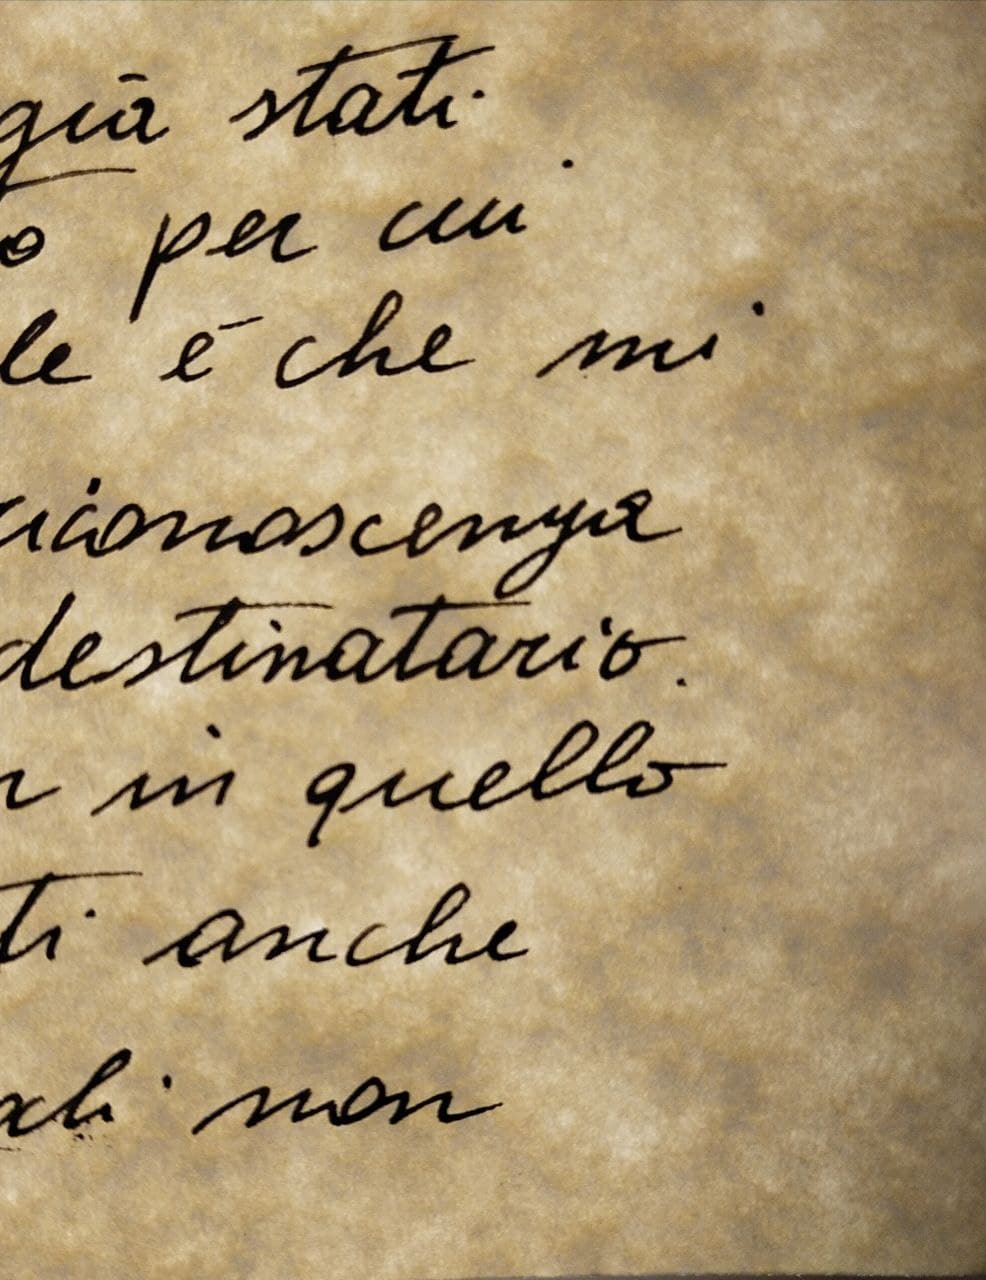 già stati
o per cui
le è che mi
riconoscenza
destinatario.
in quello
ti anche
ali non